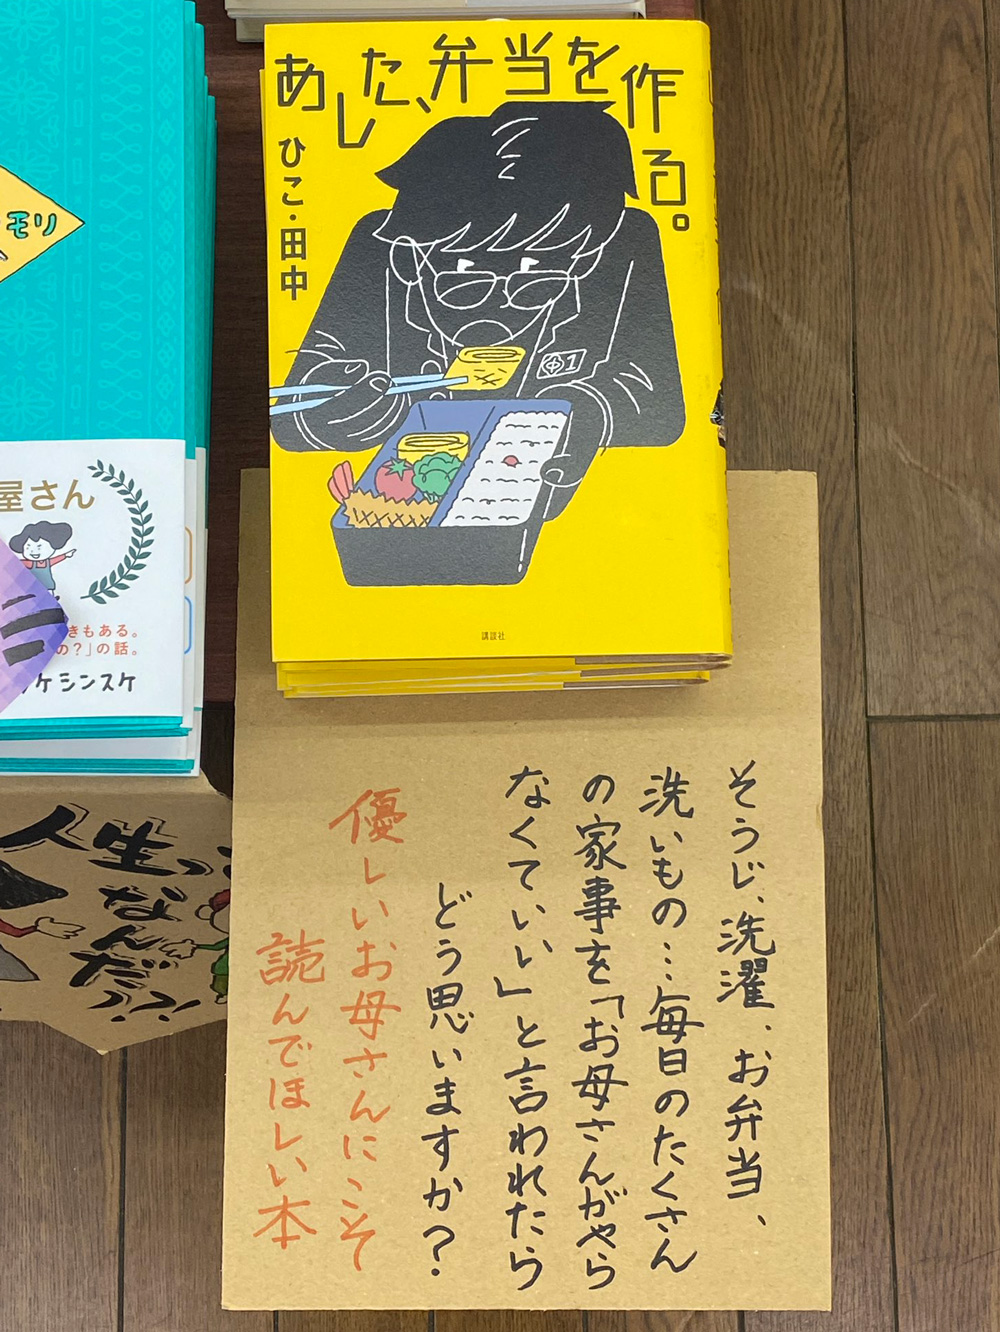 あした、弁当を作る。
ひこ・田中
中1
講談社
そうじ、洗濯、お弁当、
洗いもの…毎日のたくさん
の家事を「お母さんがやら
なくていい」と言われたら
どう思いますか?
優しいお母さんにこそ
読んでほしい本
モリ
屋さん
きもある。
の?」の話。
ケシンスケ
人生って
なんだ??!